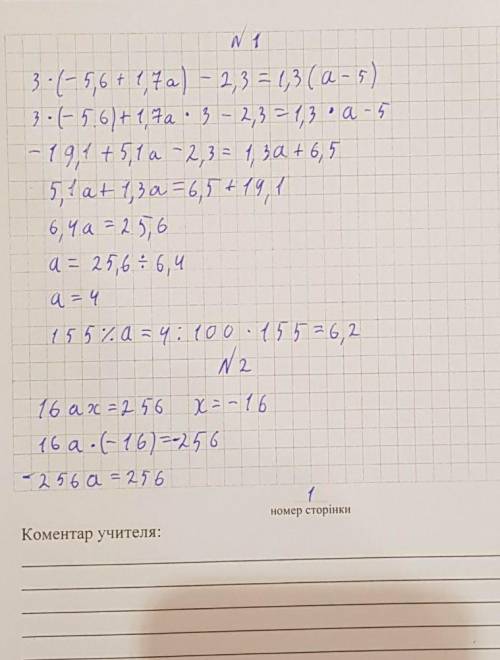 № 1
3·(-5,6 + 1,7a) - 2,3 = 1,3(a - 5)
3·(-5 6) + 1,7a · 3 - 2,3 = 1,3 · a - 5
-19,1 + 5,1a - 2,3 = 1,3a + 6,5
5,1a + 1,3a = 6,5 + 19,1
6,4a = 25,6
a = 25,6 ÷ 6,4
a = 4
155% a = 4 : 100 · 155 = 6,2
№ 2
16ax = 256 x = -16
16a·(-16) = -256
-256a = 256
1
номер сторінки
Коментар учителя: